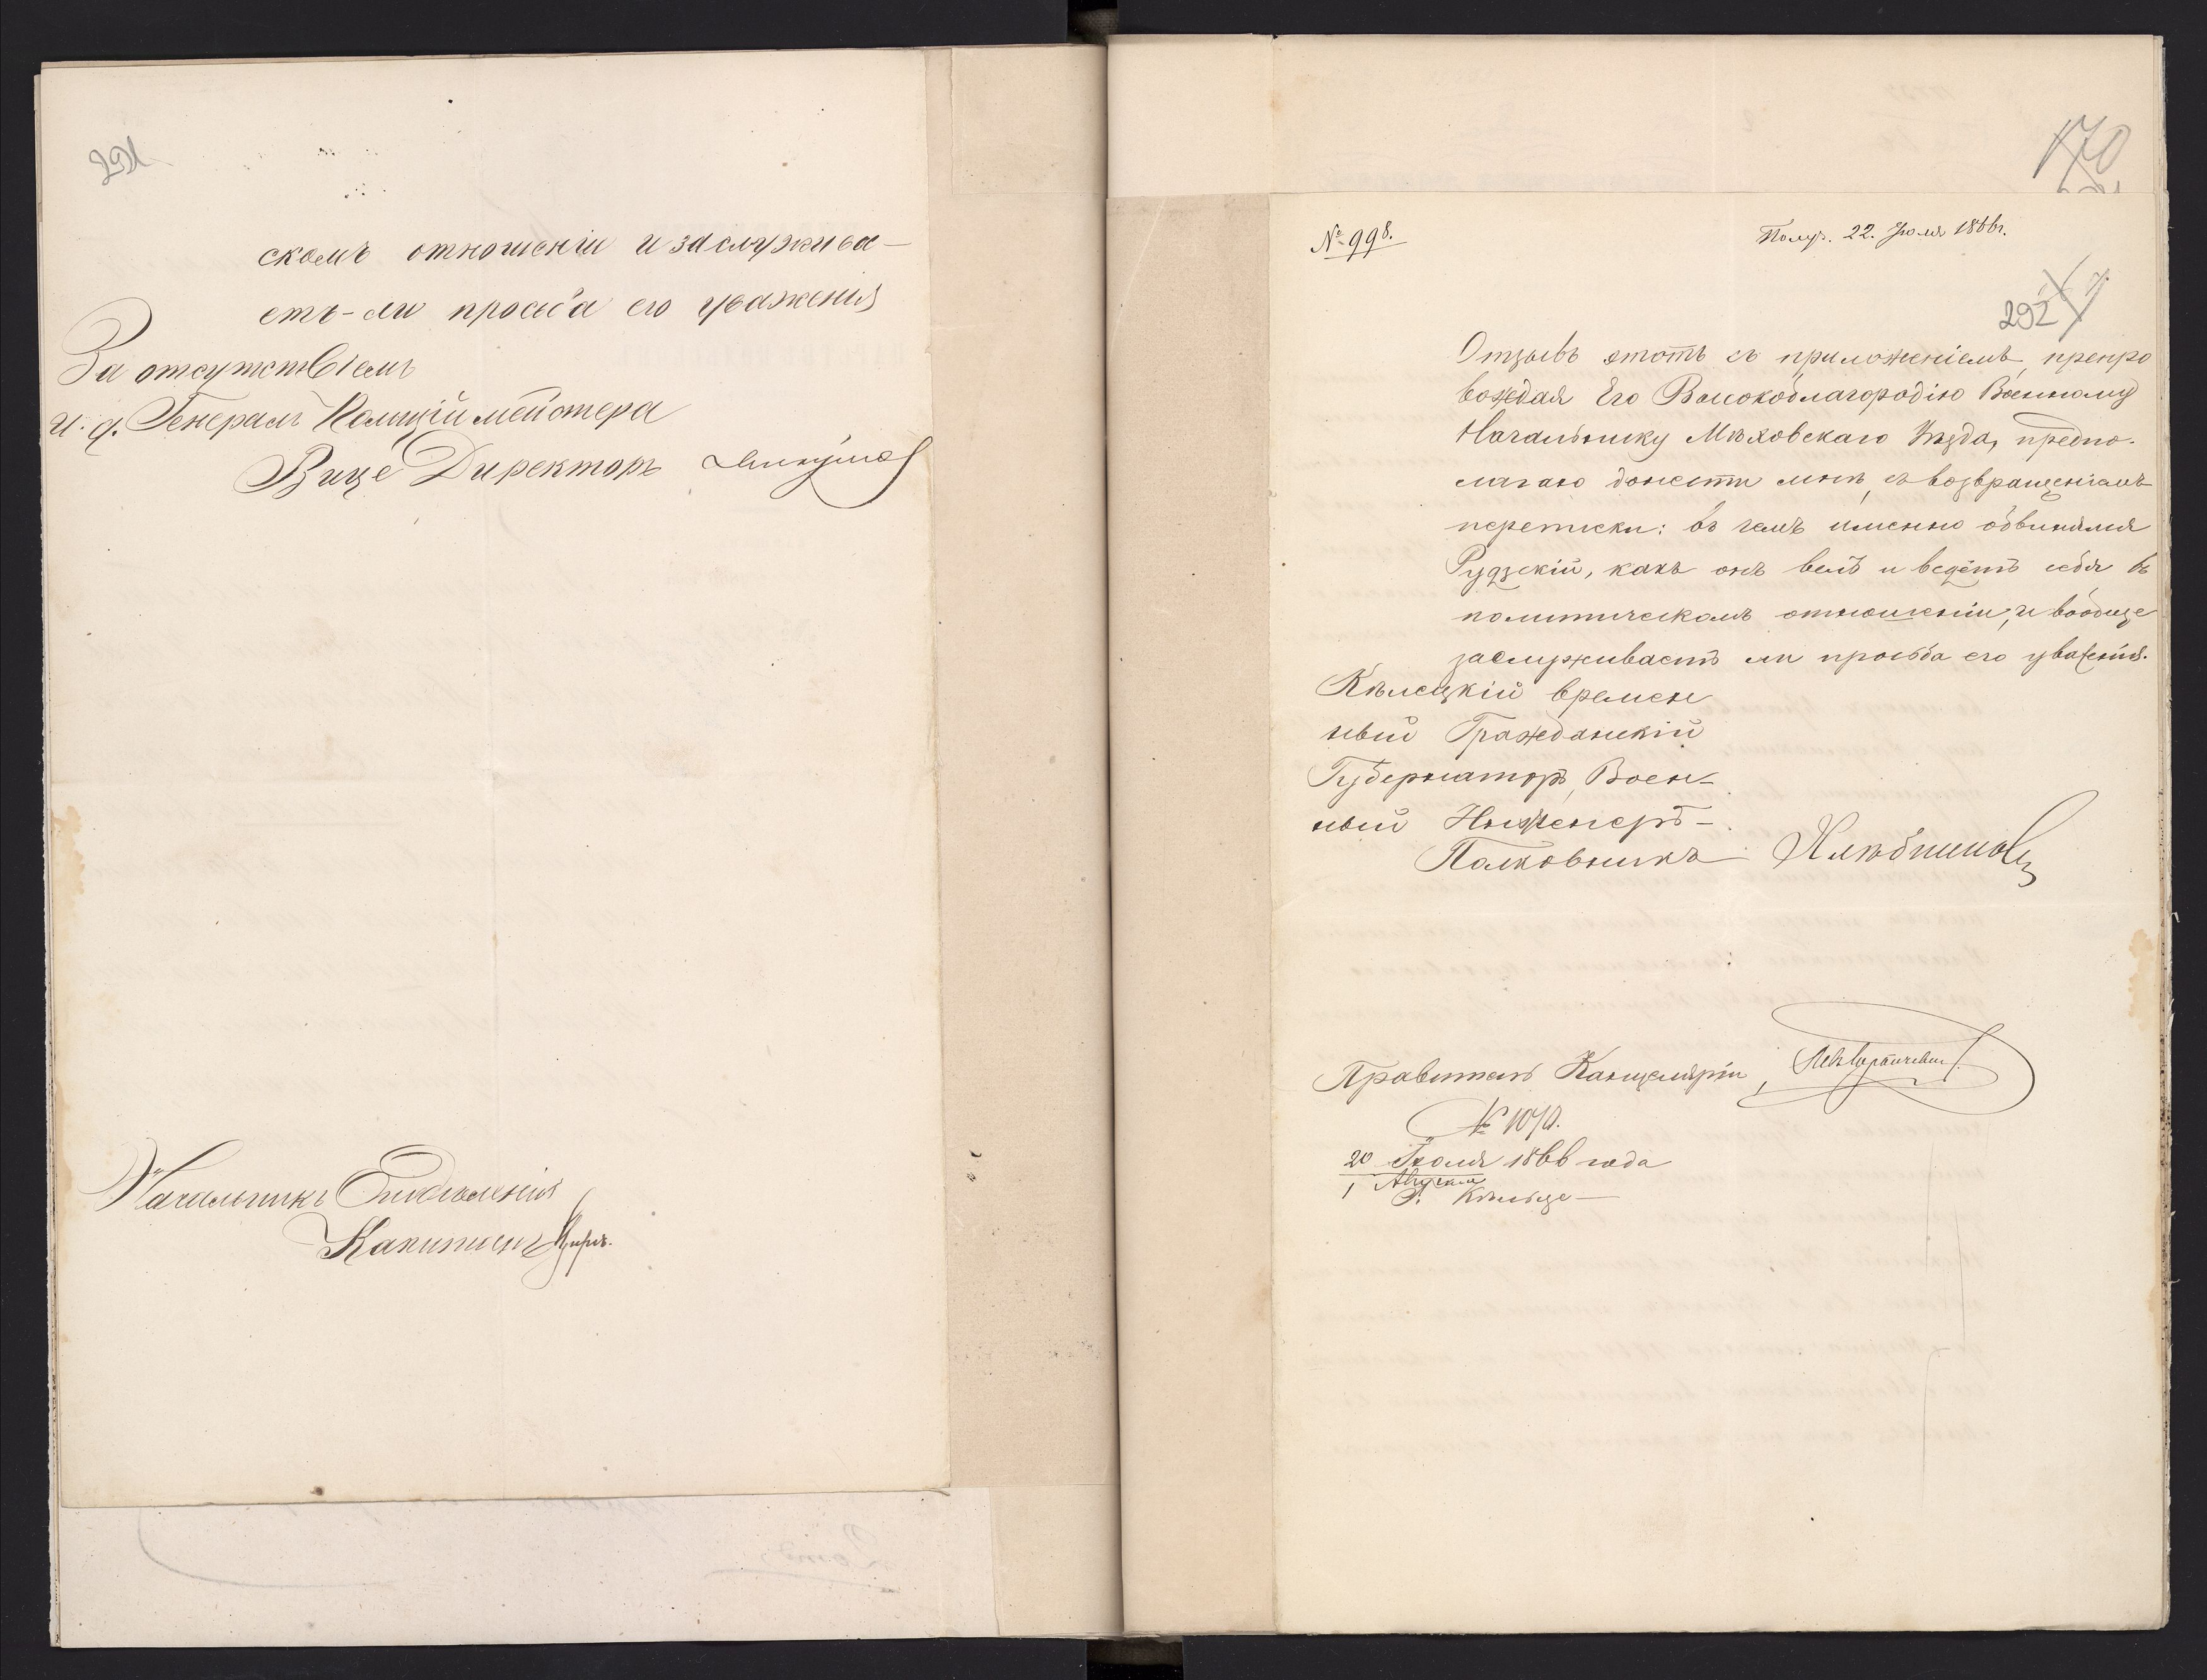 291
скомъ отношеніи и заслужива-
етъ-ли просьба его уваженія
За отсутствіемъ
и. д. Генералъ Полиціймейстера
Вице Директоръ
Начальникъ Отдѣленія
Капитанъ
170
№ 998.
Получ. 22. Іюля 1866г.
292
Отзывъ этотъ съ приложеніемъ, препро
вождая Его Высокоблагородію Военному
Начальнику Мѣховскаго Уѣзда, предпо-
лагаю донести мнѣ, съ возвращеніемъ
переписки: въ чемъ именно обвинялся
Рудзскій, какъ онъ велъ и ведётъ себя въ
политическомъ отношеніи, и вообще
заслуживаетъ ли просьба его уваженія.
Кѣлецкій времен
ный Гражданскій
Губернаторъ, Воен-
ный Инженеръ-
Полковникъ Хлѣбниковъ
Правитель Канцеляріи,
№ 1070.
20 Іюля 1866 года
1 Августа
Г. Кѣльце